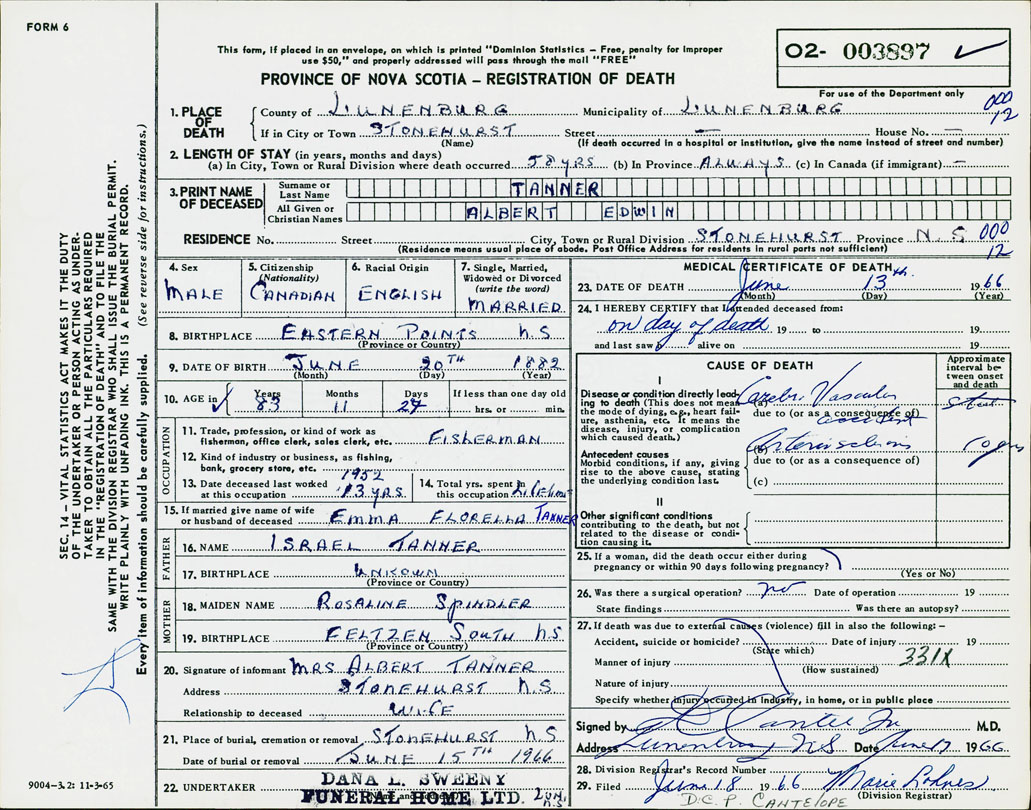 FORM 6
This form, if placed in an envelope, on which is printed "Dominion Statistics – Free, penalty for improper
use $50," and properly addressed will pass through the mail "FREE"
PROVINCE OF NOVA SCOTIA – REGISTRATION OF DEATH
02- 003897 ✓
For use of the Department only
000
12
1. PLACE OF DEATH
County of LUNENBURG Municipality of LUNENBURG
If in City or Town STONEHURST Street — House No. —
(Name) (If death occurred in a hospital or institution, give the name instead of street and number)
2. LENGTH OF STAY (in years, months and days)
(a) In City, Town or Rural Division where death occurred 58 YRS (b) In Province ALWAYS (c) In Canada (if immigrant) —
3. PRINT NAME OF DECEASED
Surname or Last Name TANNER
All Given or Christian Names ALBERT EDWIN
RESIDENCE No. Street City, Town or Rural Division STONEHURST Province N S 000
(Residence means usual place of abode. Post Office Address for residents in rural parts not sufficient) 12
4. Sex
MALE
5. Citizenship
(Nationality)
CANADIAN
6. Racial Origin
ENGLISH
7. Single, Married,
Widowed or Divorced
(write the word)
MARRIED
8. BIRTHPLACE EASTERN POINTS N.S
(Province or Country)
9. DATE OF BIRTH JUNE 20TH 1882
(Month) (Day) (Year)
10. AGE in Years Months Days If less than one day old
83 11 24 hrs. or min.
OCCUPATION
11. Trade, profession, or kind of work as
fisherman, office clerk, sales clerk, etc. FISHERMAN
12. Kind of industry or business, as fishing,
bank, grocery store, etc.
1952
13. Date deceased last worked
at this occupation 13 YRS
14. Total yrs. spent in
this occupation
15. If married give name of wife
or husband of deceased EMMA FLORELLA TANNER
FATHER
16. NAME ISRAEL TANNER
17. BIRTHPLACE UNKOWN
(Province or Country)
MOTHER
18. MAIDEN NAME ROSALINE SPINDLER
19. BIRTHPLACE FELTZEN SOUTH N.S
(Province or Country)
20. Signature of informant MRS ALBERT TANNER
Address STONEHURST N.S
Relationship to deceased WIFE
21. Place of burial, cremation or removal STONEHURST N S
Date of burial or removal JUNE 15TH 1966
22. UNDERTAKER DANA L. SWEENY
FUNERAL HOME LTD. LUN. N.S.
(Name and address)
MEDICAL CERTIFICATE OF DEATH
23. DATE OF DEATH June 13th 1966
(Month) (Day) (Year)
24. I HEREBY CERTIFY that I attended deceased from:
on day of death 19 to 19
and last saw h alive on 19
CAUSE OF DEATH
Approximate
interval be-
tween onset
and death
I
Disease or condition directly lead-
ing to death (This does not mean
the mode of dying, e.g., heart fail-
ure, asthenia, etc. It means the
disease, injury, or complication
which caused death.)
Cerebro Vascular
due to (or as a consequence of)
accident
Antecedent causes
Morbid conditions, if any, giving
rise to the above cause, stating
the underlying condition last.
(b)
due to (or as a consequence of)
(c)
II
Other significant conditions
contributing to the death, but not
related to the disease or condi-
tion causing it.
25. If a woman, did the death occur either during
pregnancy or within 90 days following pregnancy?
(Yes or No)
26. Was there a surgical operation? no Date of operation 19
State findings Was there an autopsy?
27. If death was due to external causes (violence) fill in also the following: –
Accident, suicide or homicide? Date of injury 19
(State which)
331X
Manner of injury
(How sustained)
Nature of injury
Specify whether injury occurred in industry, in home, or in public place
Signed by M.D.
Address Lunenburg NS Date June 17 1966
28. Division Registrar's Record Number
29. Filed June 18 1966 Marie
(Division Registrar)
D.C.P. CANTELOPE
SEC. 14 – VITAL STATISTICS ACT MAKES IT THE DUTY
OF THE UNDERTAKER OR PERSON ACTING AS UNDER-
TAKER TO OBTAIN ALL THE PARTICULARS REQUIRED
IN THE "REGISTRATION OF DEATH" AND TO FILE THE
SAME WITH THE DIVISION REGISTRAR WHO SHALL ISSUE THE BURIAL PERMIT.
WRITE PLAINLY WITH UNFADING INK. THIS IS A PERMANENT RECORD.
Every item of information should be carefully supplied. (See reverse side for instructions.)
9004-3.2: 11-3-65